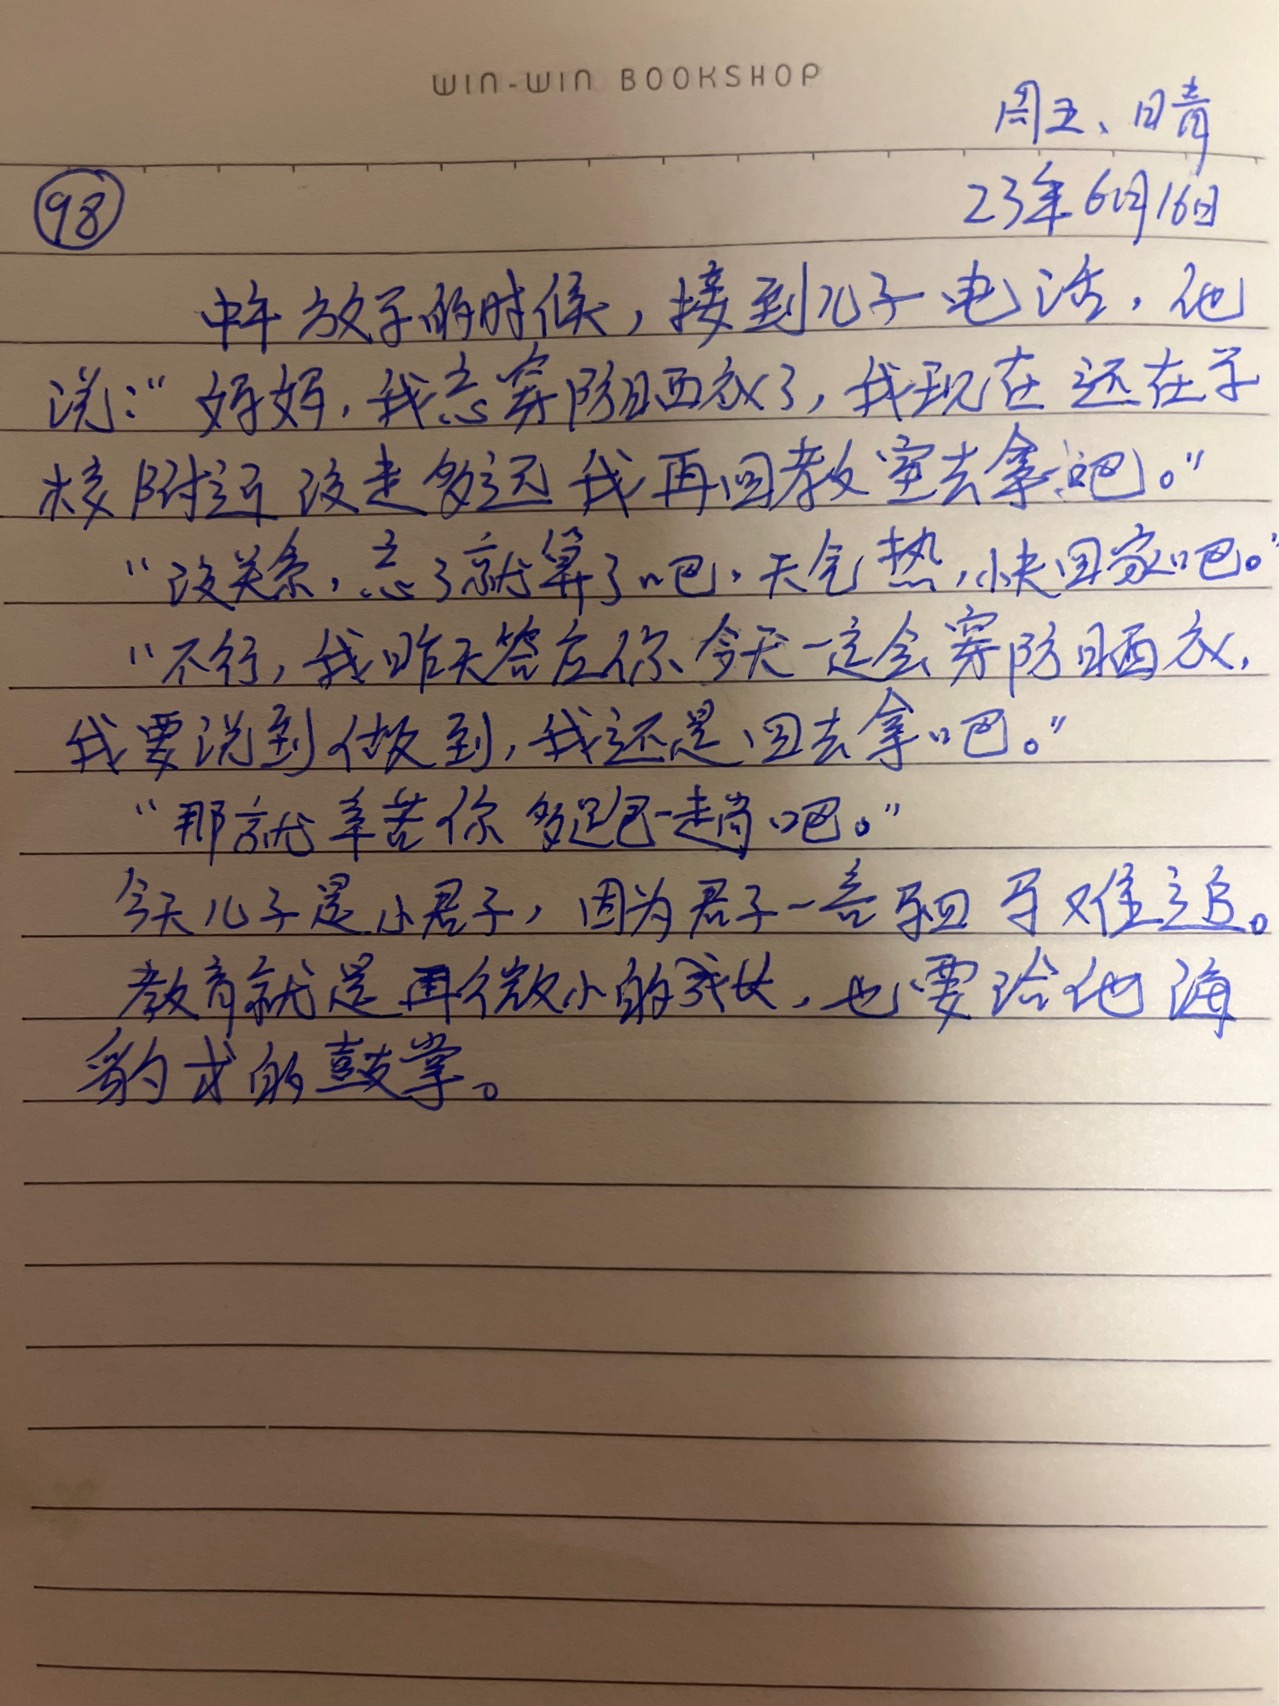 WIN-WIN BOOKSHOP
周五、晴
98
23年6月16日
中午放学的时候，接到儿子电话，他
说：“妈妈，我忘穿防晒衣了，我现在还在学
校附近没走多远我再回教室去拿吧。”
“没关系，忘了就算了吧，天气热，快回家吧。”
“不行，我昨天答应你今天一定会穿防晒衣，
我要说到做到，我还是回去拿吧。”
“那就辛苦你多跑一趟吧。”
今天儿子是小君子，因为君子一言驷马难追。
教育就是再微小的成长，也要给他海
豹式的鼓掌。